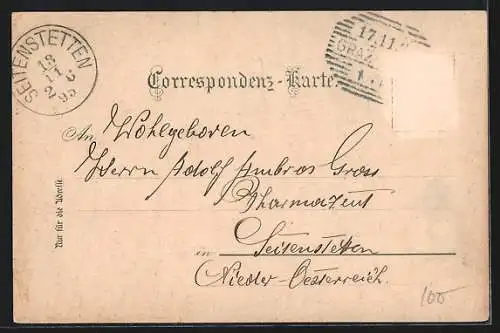 SEITENSTETTEN
18
11
2 6
95
17.11.
GRAZ
1
Correspondenz-Karte.
An Wohlgeboren
Herrn Adolf Ambros Gross
Pharmazeut
in Seitenstetten
Nieder-Oesterreich.
Nur für die Adresse.
100